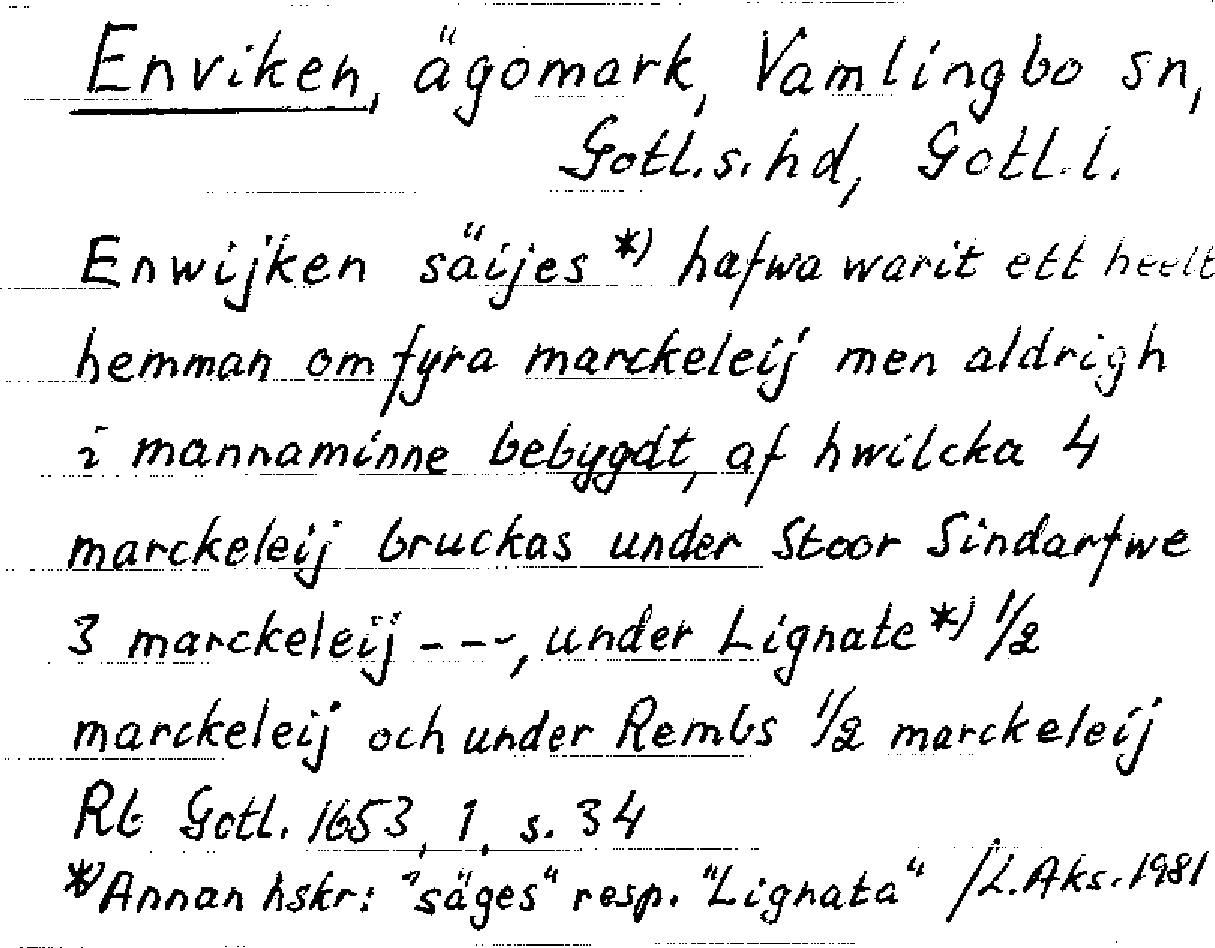 Enviken, ägomark, Vamlingbo sn,
Gotl.s.hd, Gotl.l.
Enwijken säijes *) hafwa warit ett heelt
hemman om fyra marckeleij men aldrigh
i mannaminne bebygdt, af hwilcka 4
marckeleij bruckas under Stoor Sindarfwe
3 marckeleij ---, under Lignate *) 1/2
marckeleij och under Rembs 1/2 marckeleij
Rb Gotl. 1653, 1, s. 34
*) Annan hskr: "säges" resp. "Lignata" /L.Aks. 1981